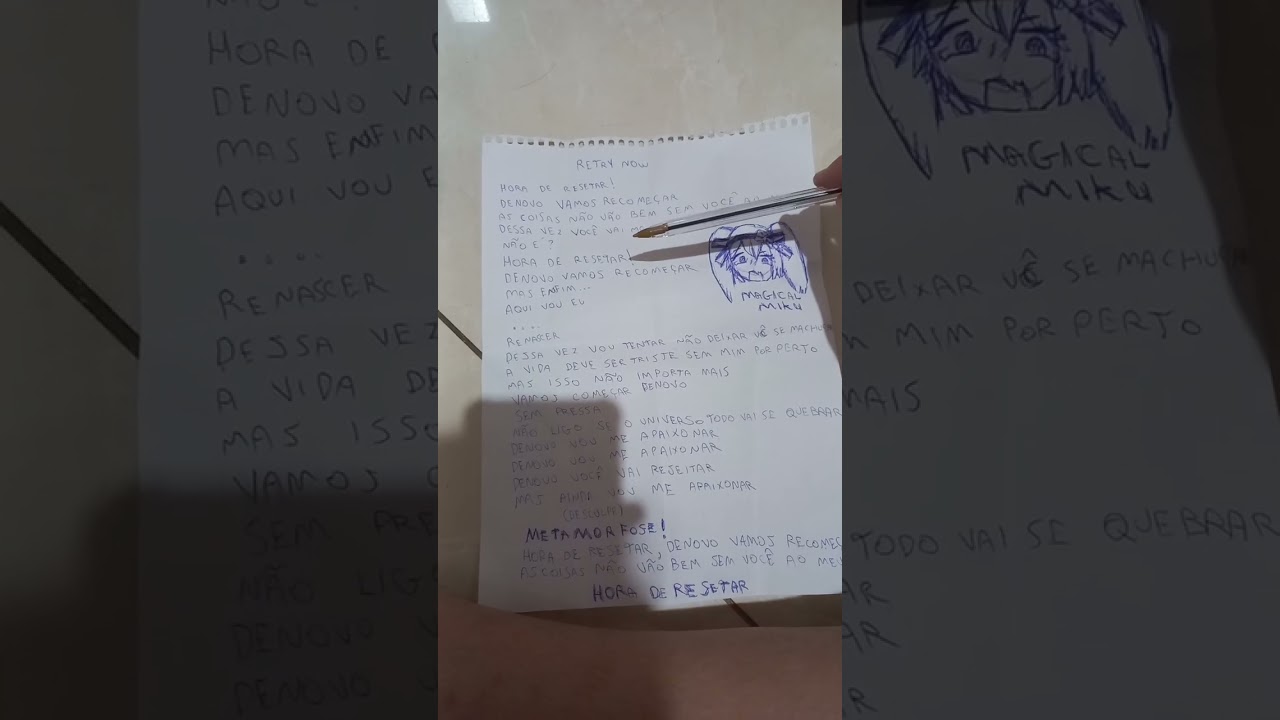 RETRY NOW
HORA DE RESETAR!
DENOVO VAMOS RECOMEÇAR
AS COISAS NÃO VÃO BEM SEM VOCÊ AO
DESSA VEZ VOCÊ VAI
NÃO É?
HORA DE RESETAR!
DENOVO VAMOS RECOMEÇAR
MAS ENFIM...
AQUI VOU EU
....
RENASCER
DESSA VEZ VOU TENTAR NÃO DEIXAR VC SE MACHUCA
A VIDA DEVE SER TRISTE SEM MIM POR PERTO
MAS ISSO NÃO IMPORTA MAIS
VAMOS COMEÇAR DENOVO
SEM PRESSA
NÃO LIGO SE O UNIVERSO TODO VAI SE QUEBRAR
DENOVO VOU ME APAIXONAR
DENOVO VOU ME APAIXONAR
DENOVO VOCÊ VAI REJEITAR
MAS AINDA VOU ME APAIXONAR
(DESCULPE)
METAMORFOSE!
HORA DE RESETAR, DENOVO VAMOS RECOMEÇ
AS COISAS NÃO VÃO BEM SEM VOCÊ AO MEU
HORA DE RESETAR
MAGICAL
MIKU